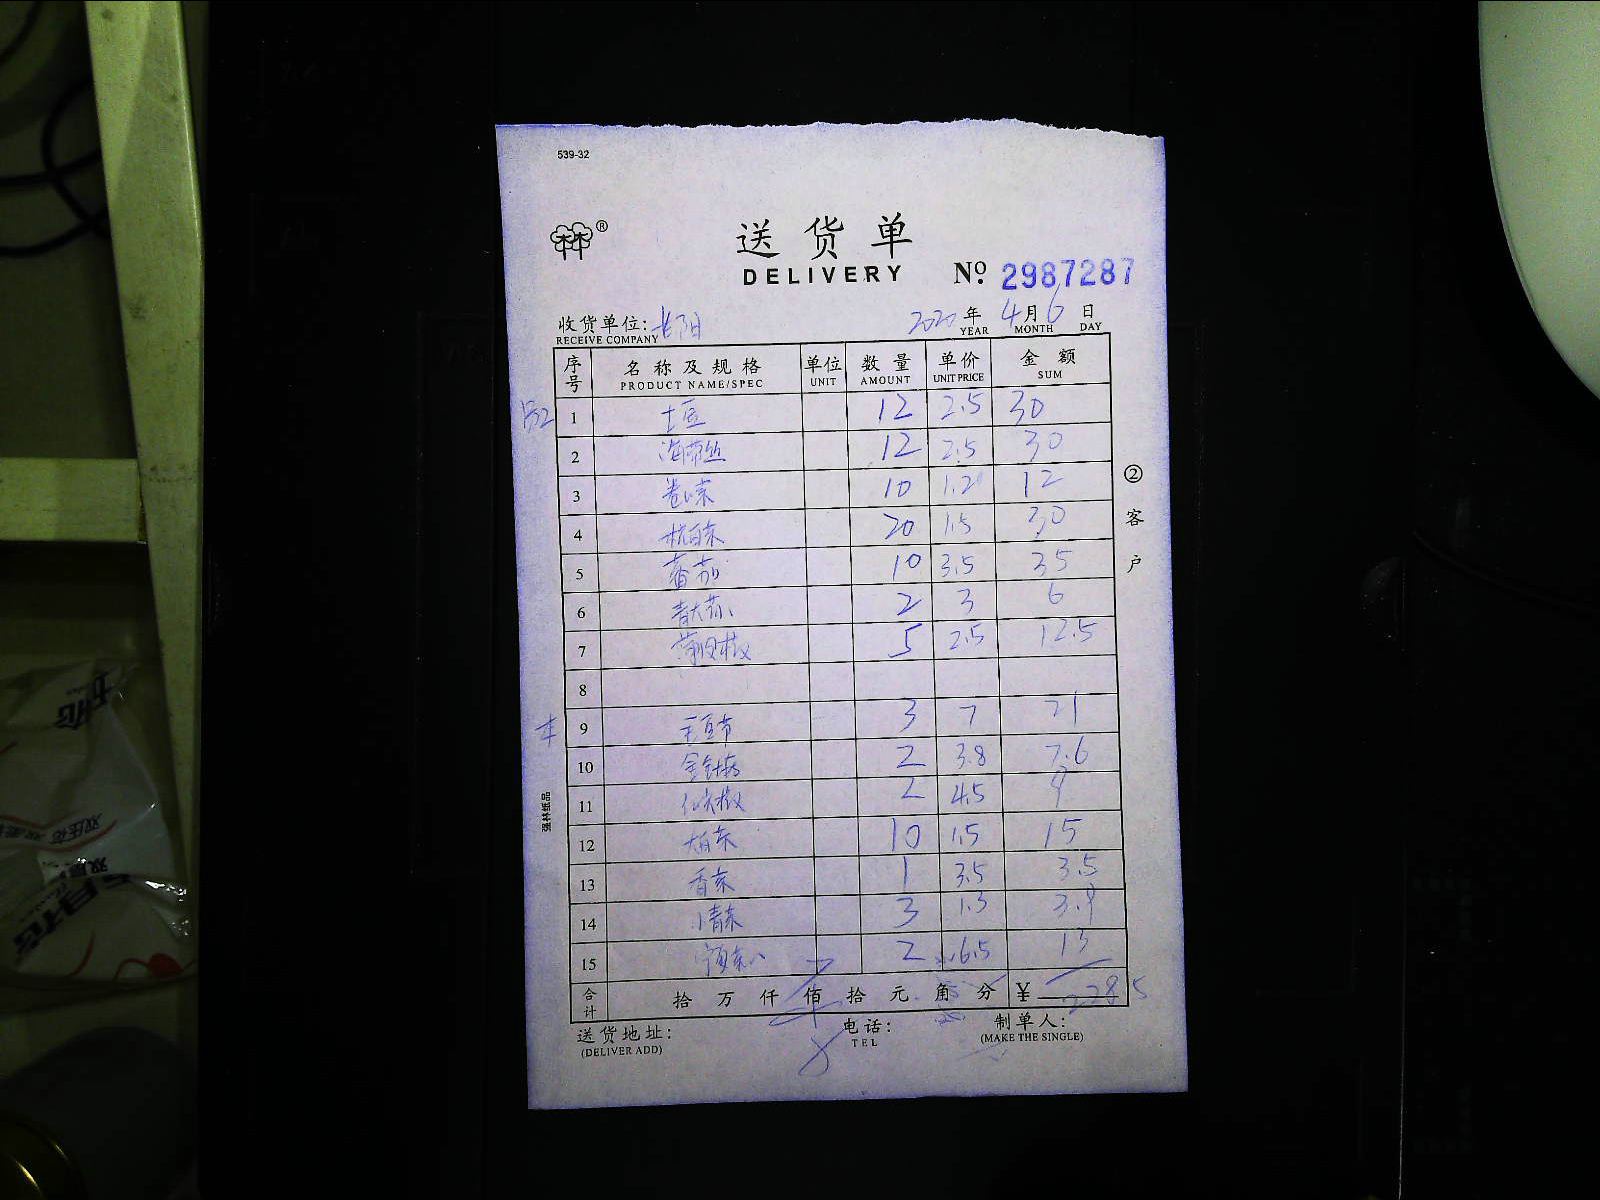 539-32
林®
送货单
DELIVERY № 2987287
收货单位: 长阳 2020年 4月 6日
RECEIVE COMPANY YEAR MONTH DAY
序号 名称及规格 单位 数量 单价 金额
PRODUCT NAME/SPEC UNIT AMOUNT UNIT PRICE SUM
1 土豆 12 2.5 30
2 海带丝 12 2.5 30
3 卷心菜 10 1.2 12
4 杭白菜 20 1.5 30
5 蕃茄 10 3.5 35
6 青大蒜 2 3 6
7 薄皮椒 5 2.5 12.5
8
9 毛豆节 3 7 21
10 金针菇 2 3.8 7.6
11 2 4.5 9
12 大白菜 10 1.5 15
13 香菜 1 3.5 3.5
14 小青菜 3 1.3 3.9
15 2 6.5 13
合计 拾万仟佰拾元角分 ¥ 228.5
送货地址: 电话: 制单人:
(DELIVER ADD) TEL (MAKE THE SINGLE)
②客户
强林纸品
双层